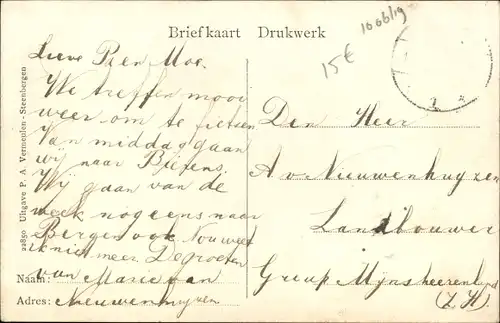 Briefkaart Drukwerk
1066/19
15€
Lieve Pa en Moe.
We treffen mooi
weer om te fietsen
Van middag gaan
wij naar
Wij gaan van de
week nog eens naar
Bergen ook. Nou weet
ik niet meer. De groeten
Naam: van Marie van
Adres: Nieuwenhuyzen
22850 Uitgave P. A. Vermeulen - Steenbergen
Den Heer
A v. Nieuwenhuyzen
Landbouwer
Greup Mijnsheerenland
(Z.H.)